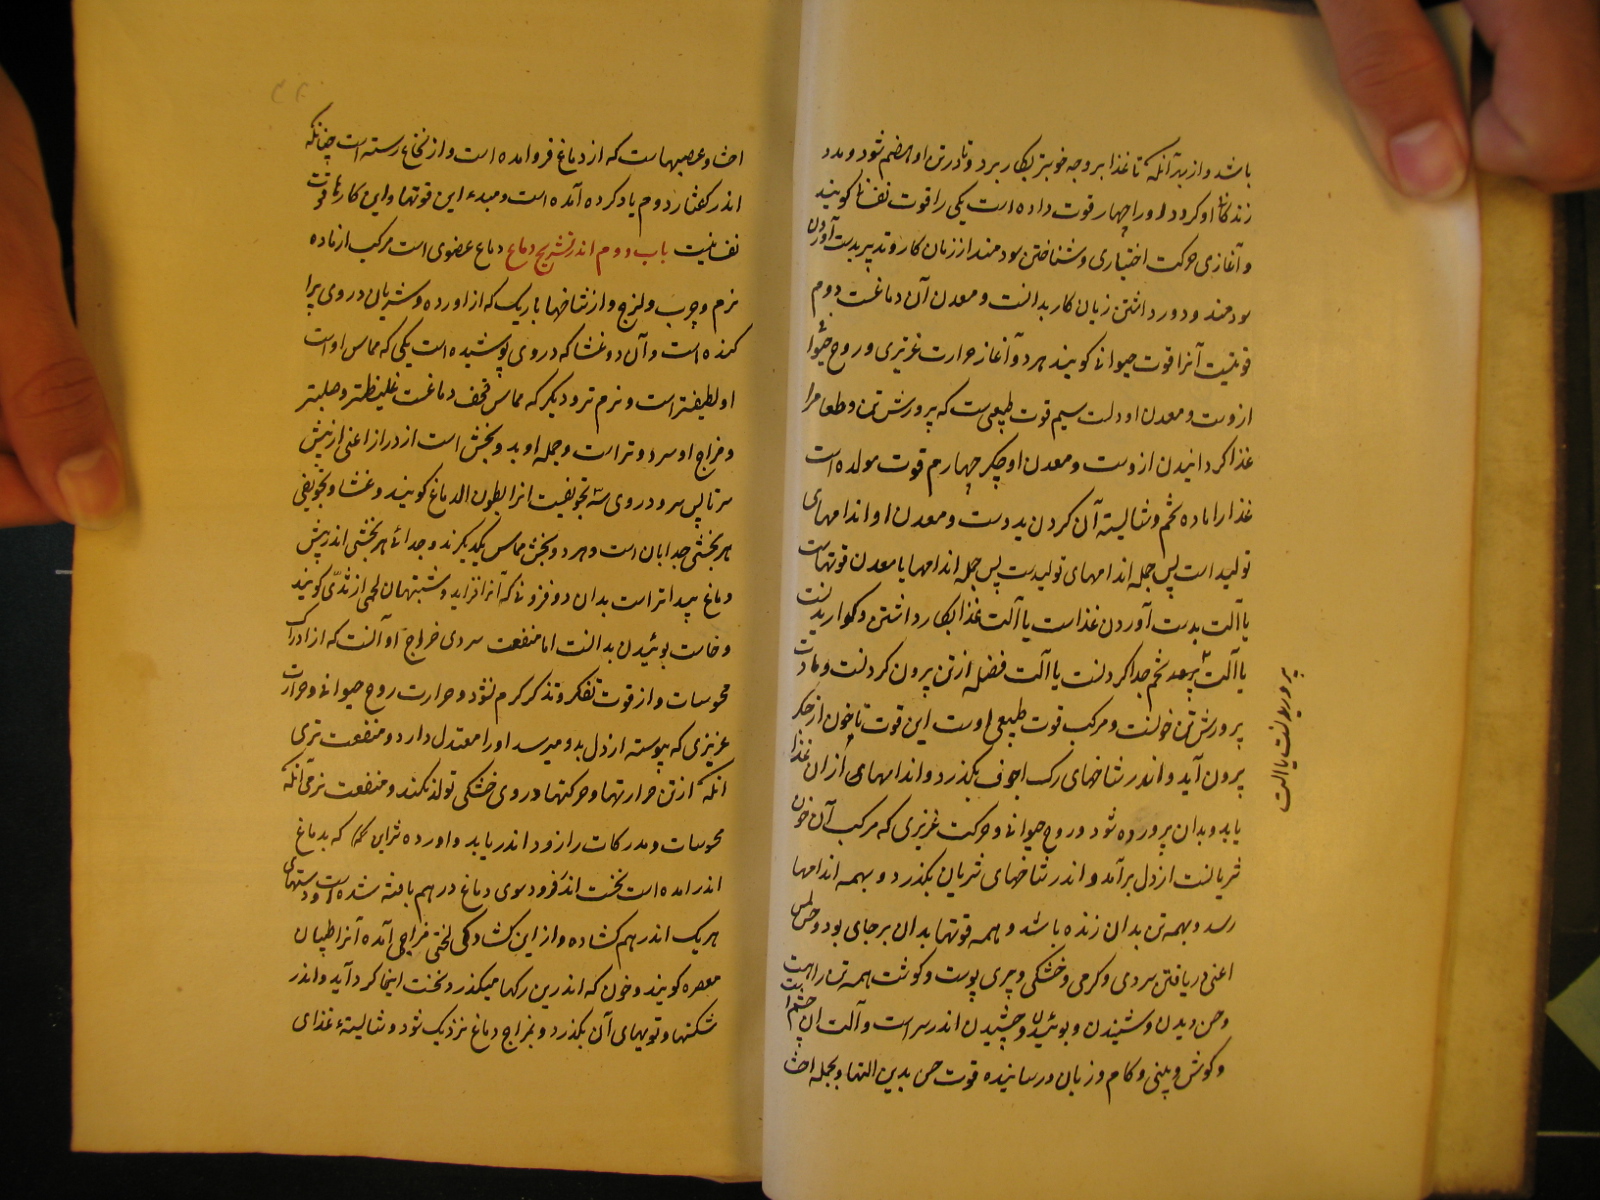 باشد و از بهر آنکه تا غذا بر وجه خوبتر بکار برد و تا در تن او هضم شود و مدد
زندکانی او کردد او را چهار قوت داده است یکی را قوت نفسانی کویند
و آغازی حرکت اختیاری و شناختن سودمند از زیان کار و تدبیر بدست آوردن
سودمند و دور داشتن زیان کار بدانست و معدن آن دماغست دوم
قوتیست آنرا قوت حیوانی کویند هر دو آغاز حرارت غریزی و روح حیوانی
ازوست و معدن او دلست سیم قوت طبیعی ست که پرورش تن و طعام را
غذا کردانیدن ازوست و معدن او جکر چهارم قوت مولده است
غذا را ماده تخم و شایسته آن کردن بدوست و معدن او اندامهای
تولید است پس جمله اندامهای تولیدست پس جمله اندامها یا معدن قوتهاست
یا آلت بدست آوردن غذاست یا آلت غذا بکار داشتن و کواریدنست
یا آلت تخم جدا کردنست یا آلت فضله از تن برون کردنست و مادت
پرورش تن خونست و مرکب قوت طبیعی اوست این قوت تا خون از جکر
برون آید و اندر شاخهای رک اجوف بکذرد و اندامهای از آن غذا
یابد و بدان پرورده شود و روح حیوانی و حرکت غریزی که مرکب آن خون
شریانست از دل برآمد و اندر شاخهای شریان بکذرد و بهمه اندامها
رسد و بهمه تن بدان زنده باشد و همه قوتها بدان بر جای بود و حس لمس
اعنی دریافتن سردی و کرمی و خشکی و چری پوست و کوشت همه تن راهست
و حس دیدن و شنیدن و بوئیدن و چشیدن اندر سر است و آلت آن چشم
و کوش و بینی و کام و زبان و رساننده قوت حس بدین آلتها و بجمله احشا
پروریدنست یا آلت
احشا و عصبهاست که از دماغ فرو آمده است و از نخاع رسته است چنانکه
اندر کفتار دوم یاد کرده آمده است و مبدء این قوتها و این کارها قوت
نفسانیست باب دوم اندر تشریح دماغ دماغ عضوی است مرکب از ماده
نرم و چرب و لزج و از شاخها باریک که از اورده و شریان در وی پرا
کنده است و آن دو غشا که در وی پوشیده است یکی که مماس اوست
او لطیفتر است و نرم تر و دیکر که مماس قحف دماغست غلیظتر و صلبتر
و مزاج او سرد و تر است و جمله او بدو بخش است از دراز اعنی از پیش
سر تا پس سر و در وی سه تجویفیست آنرا بطون الدماغ کویند و غشا و تجویفی
هر بخشی جدا بان است و هر دو بخش مماس یکدیکرند و جدائی هر بخشی اندر پیش
دماغ پیداتر است بدان دو فزونی که آنرا زاید و شبتهان لحمی از ثدی کویند
و خاست بوئیدن بدانست اما منفعت سردی مزاج او آنست که از ادراک
محسوسات و از قوت تفکر و تذکر کرم نشود و حرارت روح حیوانی و حرارت
عزیزی که پیوسته از دل بدو میرسد او را معتدل دارد و منفعت تری
آنکه از تن حرارتها و حرکتها در وی خشکی تولد نکند و منفعت نرمی آنکه
محسوسات و مدرکات را زود اندر یابد و اورده شراین که بدماغ
اندر آمده است نخست اندر فرود سوی دماغ در هم بافته شده است و دستهای
هر یک اندر هم کشاده و از این کشادکی لختی فراجی آمده آنرا طپان
معصره کویند و خون که اندرین رکها میکذرد نخست اینجا کرد آید و اندر
شکنها و تویهای آن بکذرد و بمزاج دماغ نزدیک شود و شایسته غذای